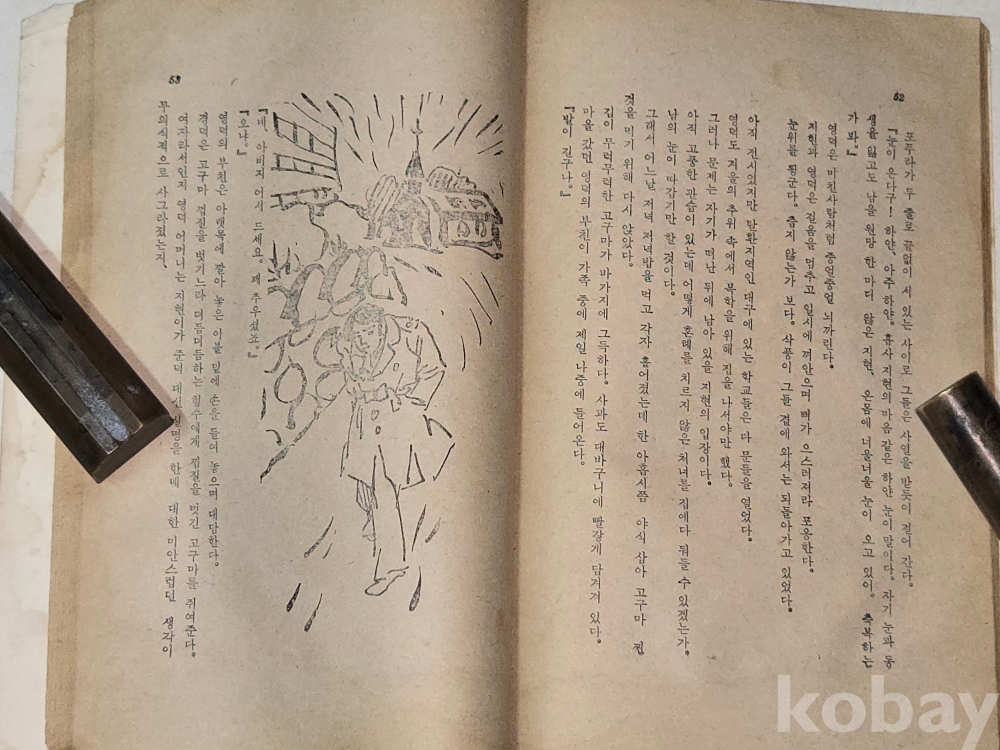 52
포푸라가 두 줄로 끝없이 서 있는 사이로 그들은 사열을 받듯이 걸어 간다.
『눈이 온다구! 하얀, 아주 하얀. 흡사 지현의 마음 같은 하얀 눈이 말이다. 자기 눈과 동
생을 잃고도 남을 원망 한 마디 않은 지현, 온몸에 너울너울 눈이 오고 있어. 축복하는
가 봐.』
영덕은 미친사람처럼 중얼중얼 뇌까린다.
지현과 영덕은 걸음을 멈추고 일시에 껴안으며 뼈가 으스러져라 포옹한다.
눈위를 뒹군다. 춥지 않는가 보다. 삭풍이 그들 곁에 와서는 되돌아가고 있었다.
아직 전시였지만 탈환지역인 대구에 있는 학교들은 다 문들을 열었다.
영덕도 겨울의 추위 속에서 복학을 위해 집을 나서야만 했다.
그러나 문제는 자기가 떠난 뒤에 남아 있을 지현의 입장이다.
아직 고풍한 관습이 있는데 어떻게 혼례를 치르지 않은 처녀를 집에다 둬둘 수 있겠는가.
남의 눈이 따갑기만 할 것이다.
그래서 어느날 저녁 저녁밥을 먹고 각자 흩어졌는데 한 아홉시쯤 야식 삼아 고구마 찐
것을 먹기 위해 다시 앉았다.
김이 무럭무럭한 고구마가 바가지에 그득하다. 사과도 대바구니에 빨갛게 담겨져 있다.
마을 갔던 영덕의 부친이 가족 중에 제일 나중에 들어온다.
『밤이 긴구나.』
53
『네, 아버지 어서 드세요. 꽤 추우셨죠.』
『오냐.』
영덕의 부친은 아랫목에 깔아 놓은 이불 밑에 손을 들여 놓으며 대답한다.
경덕은 고구마 껍질을 벗기느라 더듬더듬하는 형수에게 껍질을 벗긴 고구마를 쥐여준다.
여자라서인지 영덕 어머니는 지현이가 준덕 대신 한네 대한 미안스럽던 생각이
무의식적으로 사그라졌는지,
kobay